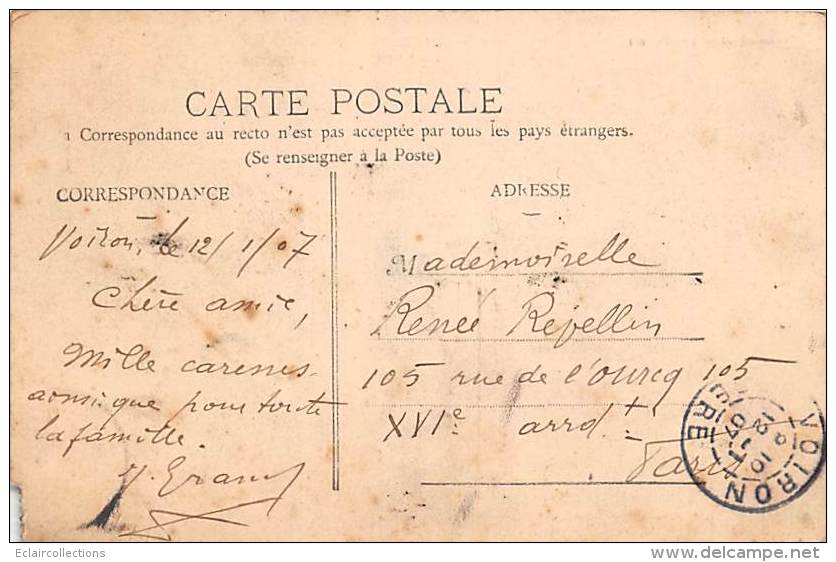 CARTE POSTALE
a Correspondance au recto n'est pas acceptée par tous les pays étrangers.
(Se renseigner à la Poste)
CORRESPONDANCE
Voiron, le 12/1/07
Chère amie,
Mille caresses
ainsi que pour toute
la famille.
ADRESSE
Mademoiselle
Renée Repellin
105 rue de l'Ourcq 105
XVIe arrdt
Paris
VOIRON
ISERE
12
07
Eclaircollections
www.delcampe.net